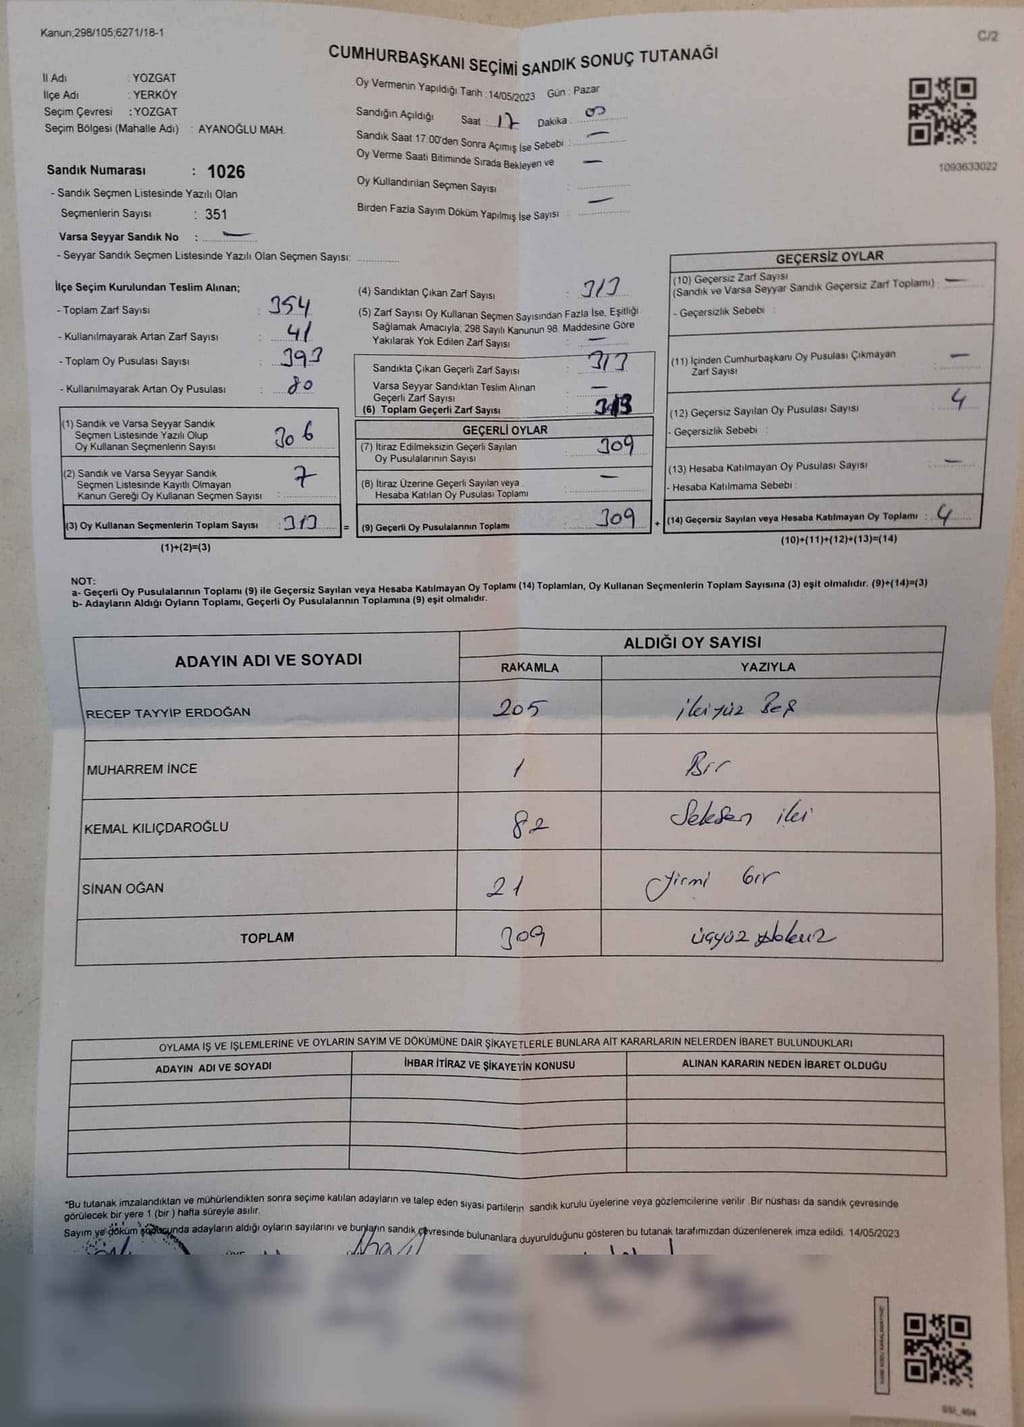 Kanun;298/105;6271/18-1
C/2
CUMHURBAŞKANI SEÇİMİ SANDIK SONUÇ TUTANAĞI
İl Adı : YOZGAT
İlçe Adı : YERKÖY
Seçim Çevresi : YOZGAT
Seçim Bölgesi (Mahalle Adı) : AYANOĞLU MAH.
Sandık Numarası : 1026
- Sandık Seçmen Listesinde Yazılı Olan
Seçmenlerin Sayısı : 351
Varsa Seyyar Sandık No : —
- Seyyar Sandık Seçmen Listesinde Yazılı Olan Seçmen Sayısı:
Oy Vermenin Yapıldığı Tarih : 14/05/2023 Gün : Pazar
Sandığın Açıldığı Saat : 17 Dakika : 00
Sandık Saat 17:00'den Sonra Açımış İse Sebebi : —
Oy Verme Saati Bitiminde Sırada Bekleyen ve —
Oy Kullandırılan Seçmen Sayısı :
Birden Fazla Sayım Döküm Yapılmış İse Sayısı : —
1093633022
İlçe Seçim Kurulundan Teslim Alınan;
- Toplam Zarf Sayısı : 354
- Kullanılmayarak Artan Zarf Sayısı : 41
- Toplam Oy Pusulası Sayısı : 393
- Kullanılmayarak Artan Oy Pusulası : 80
(1) Sandık ve Varsa Seyyar Sandık
Seçmen Listesinde Yazılı Olup
Oy Kullanan Seçmenlerin Sayısı : 306
(2) Sandık ve Varsa Seyyar Sandık
Seçmen Listesinde Kayıtlı Olmayan
Kanun Gereği Oy Kullanan Seçmen Sayısı : 7
(3) Oy Kullanan Seçmenlerin Toplam Sayısı : 313
(1)+(2)=(3)
(4) Sandıktan Çıkan Zarf Sayısı : 313
(5) Zarf Sayısı Oy Kullanan Seçmen Sayısından Fazla İse, Eşitliği
Sağlamak Amacıyla; 298 Sayılı Kanunun 98. Maddesine Göre
Yakılarak Yok Edilen Zarf Sayısı : —
Sandıkta Çıkan Geçerli Zarf Sayısı : 313
Varsa Seyyar Sandıktan Teslim Alınan
Geçerli Zarf Sayısı : —
(6) Toplam Geçerli Zarf Sayısı : 313
GEÇERLİ OYLAR
(7) İtiraz Edilmeksizin Geçerli Sayılan
Oy Pusulalarının Sayısı : 309
(8) İtiraz Üzerine Geçerli Sayılan veya
Hesaba Katılan Oy Pusulası Toplamı : —
= (9) Geçerli Oy Pusulalarının Toplamı : 309
GEÇERSİZ OYLAR
(10) Geçersiz Zarf Sayısı
(Sandık ve Varsa Seyyar Sandık Geçersiz Zarf Toplamı) : —
- Geçersizlik Sebebi :
(11) İçinden Cumhurbaşkanı Oy Pusulası Çıkmayan
Zarf Sayısı : —
(12) Geçersiz Sayılan Oy Pusulası Sayısı : 4
- Geçersizlik Sebebi :
(13) Hesaba Katılmayan Oy Pusulası Sayısı : —
- Hesaba Katılmama Sebebi :
+ (14) Geçersiz Sayılan veya Hesaba Katılmayan Oy Toplamı : 4
(10)+(11)+(12)+(13)=(14)
NOT:
a- Geçerli Oy Pusulalarının Toplamı (9) ile Geçersiz Sayılan veya Hesaba Katılmayan Oy Toplamı (14) Toplamları, Oy Kullanan Seçmenlerin Toplam Sayısına (3) eşit olmalıdır. (9)+(14)=(3)
b- Adayların Aldığı Oyların Toplamı, Geçerli Oy Pusulalarının Toplamına (9) eşit olmalıdır.
ADAYIN ADI VE SOYADI
ALDIĞI OY SAYISI
RAKAMLA YAZIYLA
RECEP TAYYİP ERDOĞAN 205 ikiyüz Beş
MUHARREM İNCE 1 Bir
KEMAL KILIÇDAROĞLU 82 Seksen iki
SİNAN OĞAN 21 yirmi bir
TOPLAM 309 üçyüz dokuz
OYLAMA İŞ VE İŞLEMLERİNE VE OYLARIN SAYIM VE DÖKÜMÜNE DAİR ŞİKAYETLERLE BUNLARA AİT KARARLARIN NELERDEN İBARET BULUNDUKLARI
ADAYIN ADI VE SOYADI İHBAR İTİRAZ VE ŞİKAYETİN KONUSU ALINAN KARARIN NEDEN İBARET OLDUĞU
*Bu tutanak imzalandıktan ve mühürlendikten sonra seçime katılan adayların ve talep eden siyasi partilerin sandık kurulu üyelerine veya gözlemcilerine verilir. Bir nüshası da sandık çevresinde
görülecek bir yere 1 (bir) hafta süreyle asılır.
Sayım ve döküm sonucunda adayların aldığı oyların sayılarını ve bunların sandık çevresinde bulunanlara duyurulduğunu gösteren bu tutanak tarafımızdan düzenlenerek imza edildi. 14/05/2023